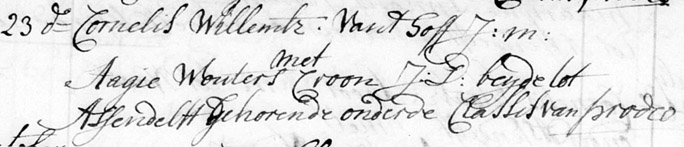 23 de Cornelis Willemtz: Vant Hoff J: m:
met
Aagie Wouters Croon J: D: beyde tot
Assendelft Gehorende onder de Classis van prodeo